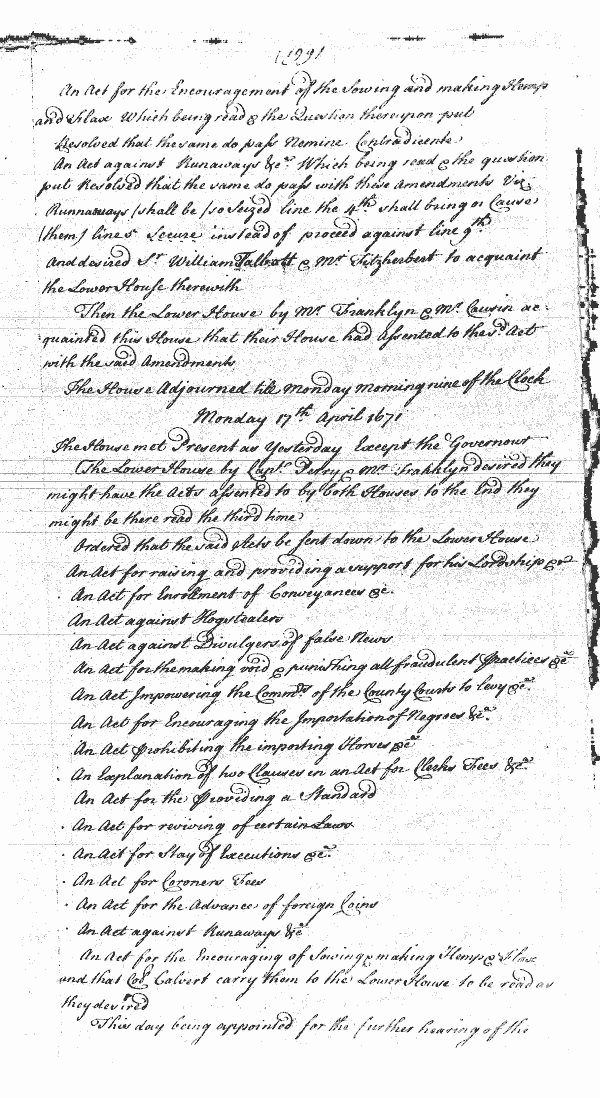 (199)
An Act for the Encouragement of the Sowing and making Hemp
and Flax Which being read & the Question thereupon put
Resolved that the same do pass Nemine Contradicente
An Act against Runaways &ca Which being read & the question
put Resolved that the same do pass with these Amendments Viz
Runnaways (shall be (so seized line the 4th shall bring or Cause
(them) line 5 Secure instead of proceed against line 9th
And desired Sr William Talbott & Mr Fitzherbert to acquaint
the Lower House therewith
Then the Lower House by Mr Franklyn & Mr Causin ac-
quainted this House that their House had Assented to the sd Act
with the said Amendments
The House Adjourned till Monday Morning nine of the Clock
Monday 17th April 1671
The House met Present as Yesterday Except the Governour
The Lower House by Capt Perry & Mr Franklyn desired they
might have the Acts assented to by both Houses to the End they
might be there read the third time
Ordered that the said Acts be sent down to the Lower House
An Act for raising and providing a support for his Lordship &ca
An Act for Enrollment of Conveyances &c.
An Act against Hogstealers
An Act against Divulgers of false News
An Act for the making void & punishing all fraudulent Practices &ca
An Act Impowering the Commrs of the County Courts to levy &ca
An Act for Encouraging the Importation of Negroes &ca
An Act prohibiting the importing Horses &ca
An Explanation of two Clauses in an Act for Clerks Fees &ca
An Act for the Providing a Standard
An Act for reviving of certain Laws
An Act for Stay of Executions &ca
An Act for Coroners Fees
An Act for the Advance of foreign Coins
An Act against Runaways &ca
An Act for the Encouraging of Sowing & making Hemp & Flax
and that Col Calvert carry them to the Lower House to be read as
they desired
This day being appointed for the further hearing of the